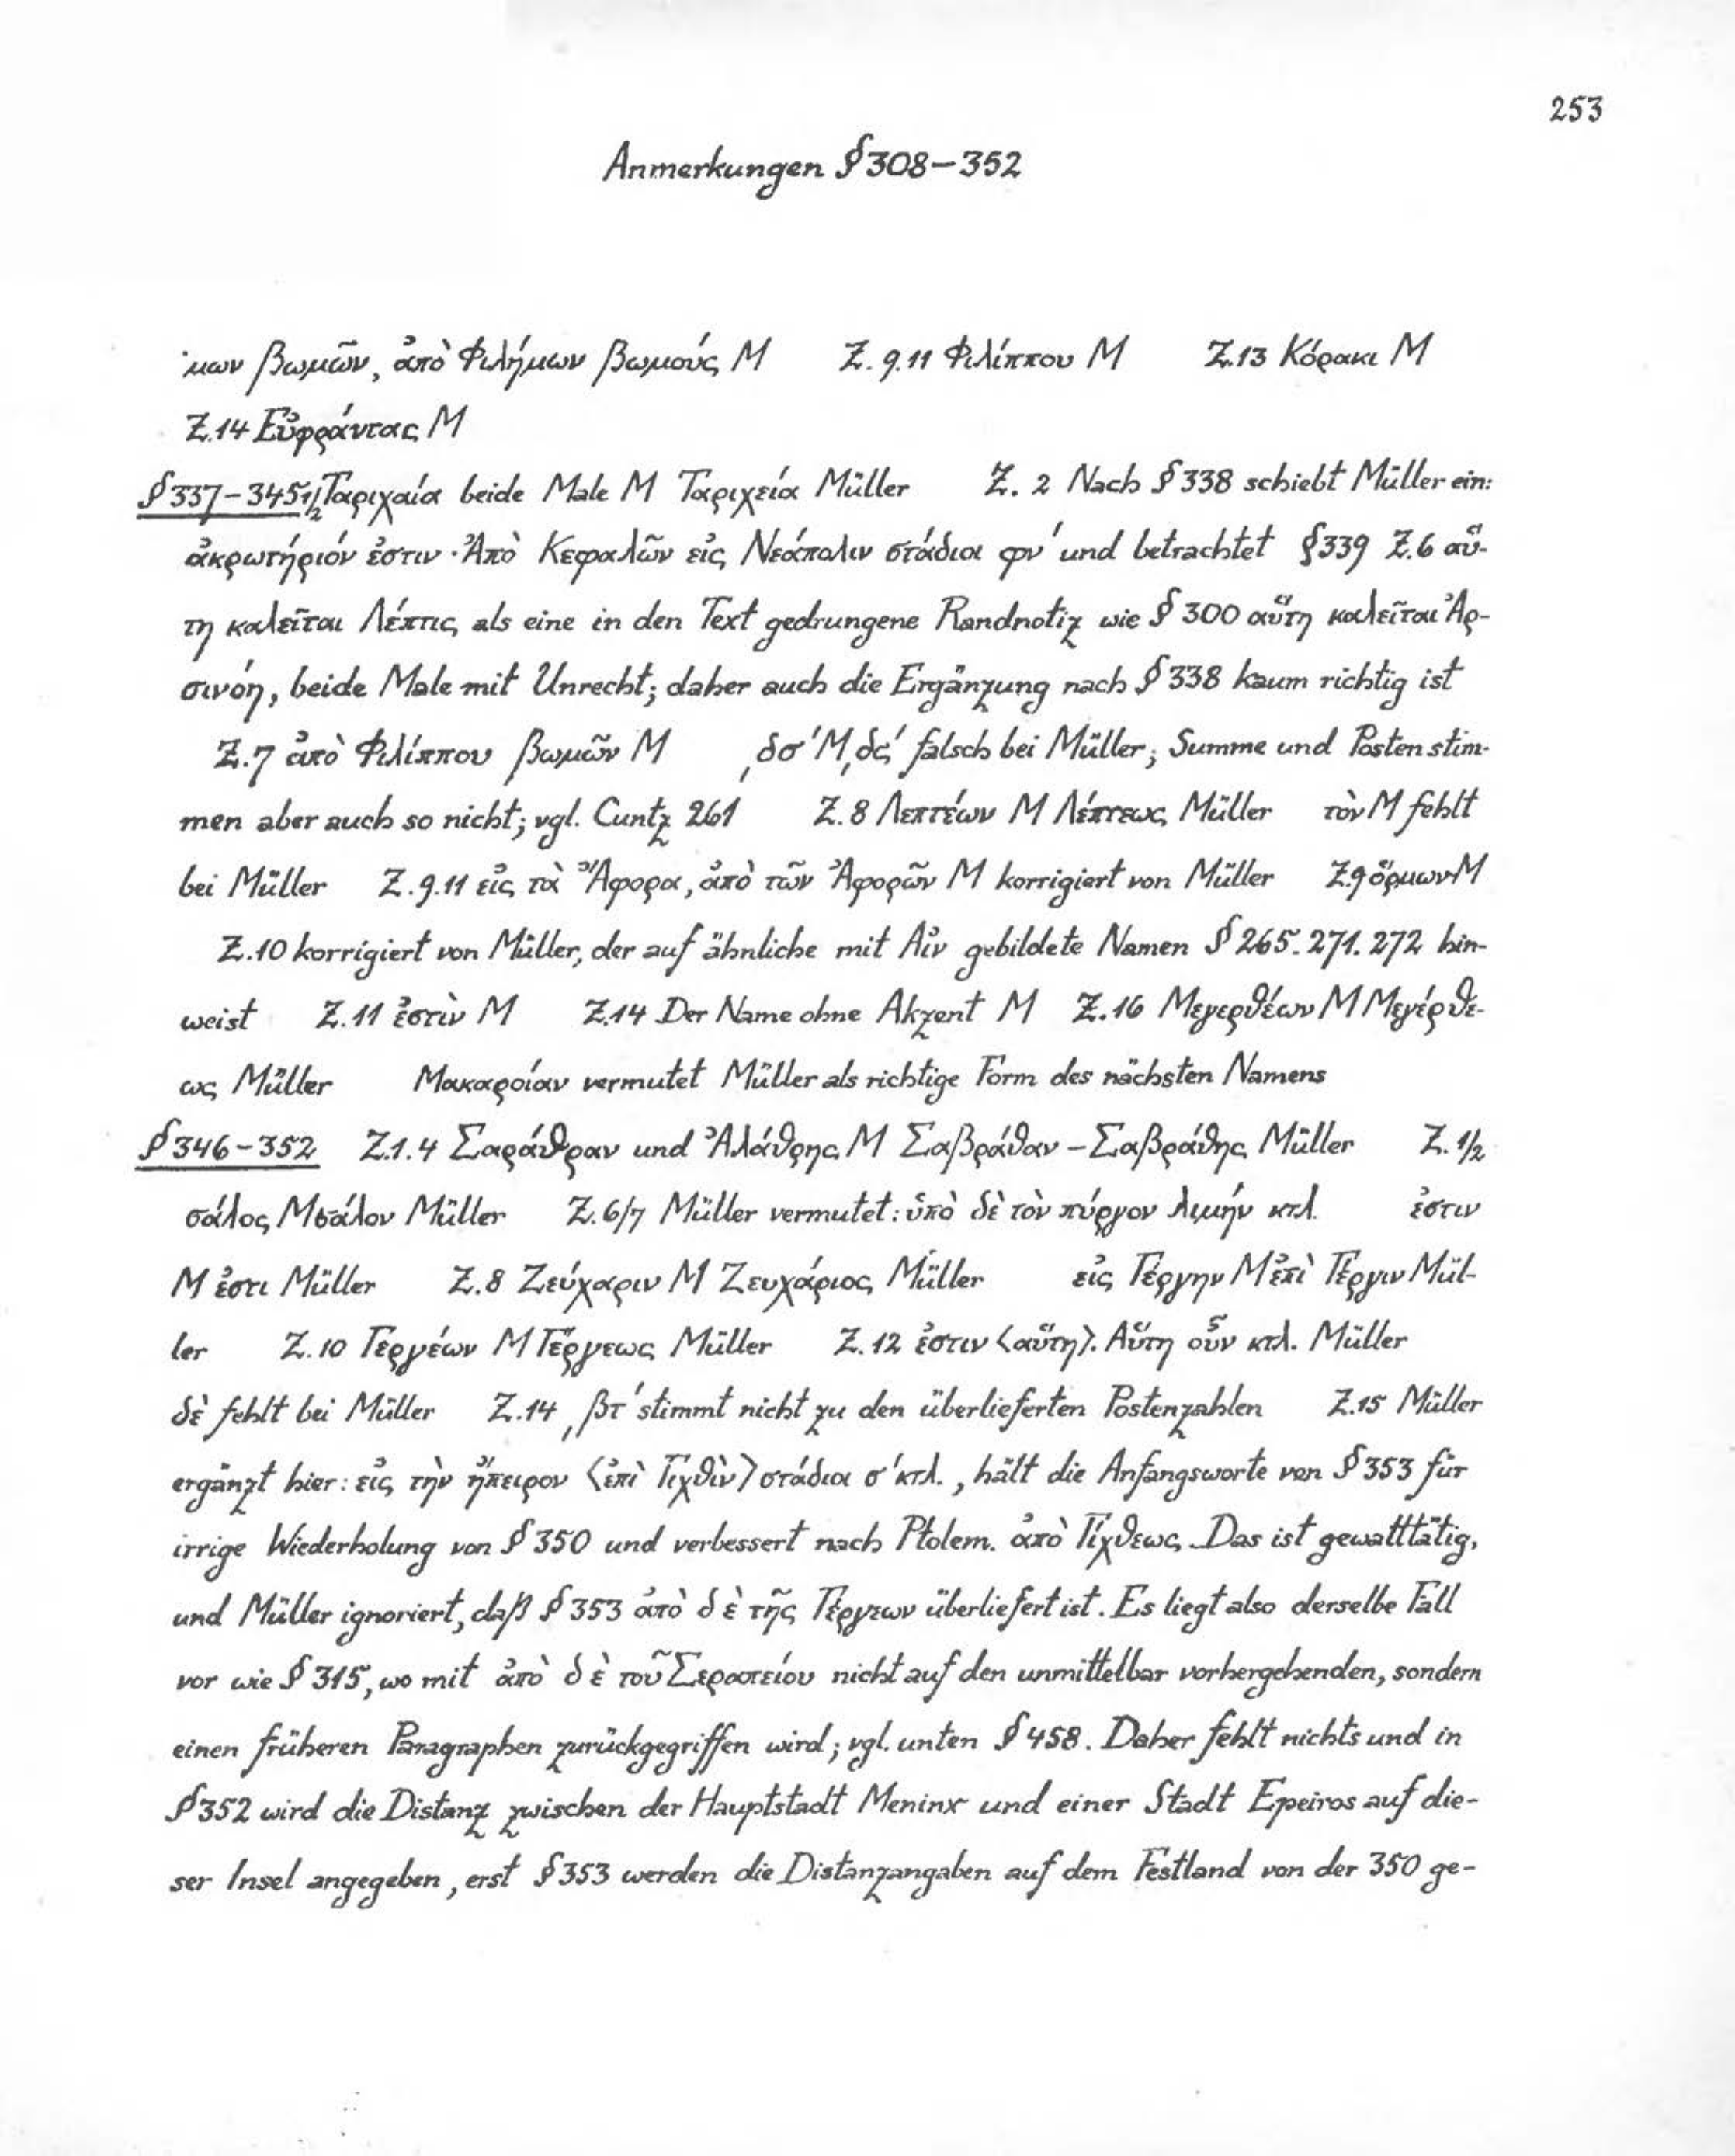 253
Anmerkungen § 308–352
μων βωμῶν, ἀπὸ Φιλήμων βωμούς M Z. 9.11 Φιλίππου M Z.13 Κόρακι M
Z.14 Εὐφράντας M
§ 337–345 1/2 Ταριχαία beide Male M Ταριχεία Müller Z. 2 Nach § 338 schiebt Müller ein:
ἀκρωτήριόν ἐστιν · Ἀπὸ Κεφαλῶν εἰς Νεάπολιν στάδιοι φν' und betrachtet § 339 Z.6 αὕ-
τη καλεῖται Λέπτις als eine in den Text gedrungene Randnotiz wie § 300 αὕτη καλεῖται Ἀρ-
σινόη, beide Male mit Unrecht; daher auch die Ergänzung nach § 338 kaum richtig ist
Z.7 ἀπὸ Φιλίππου βωμῶν M ͵δσ' M ͵δς' falsch bei Müller; Summe und Posten stim-
men aber auch so nicht; vgl. Cuntz 261 Z. 8 Λεπτέων M Λέπτεως Müller τὸν M fehlt
bei Müller Z. 9.11 εἰς τὰ Ἄφορα, ἀπὸ τῶν Ἀφορῶν M korrigiert von Müller Z.9 ὅρμων M
Z.10 korrigiert von Müller, der auf ähnliche mit Αἰν gebildete Namen § 265. 271. 272 hin-
weist Z. 11 ἐστὶν M Z.14 Der Name ohne Akzent M Z.16 Μεγερθέων M Μεγέρθε-
ως Müller Μακαροίαν vermutet Müller als richtige Form des nächsten Namens
§ 346–352 Z.1.4 Σαράθραν und Ἀλάθρης M Σαβράθαν – Σαβράθης Müller Z. 1/2
σάλος M σάλον Müller Z. 6/7 Müller vermutet: ὑπὸ δὲ τὸν πύργον λιμήν κτλ. ἐστιν
M ἐστι Müller Z. 8 Ζεύχαριν M Ζευχάριος Müller εἰς Γέργην M ἐπὶ Γέργιν Mül-
ler Z. 10 Γεργέων M Γέργεως Müller Z. 12 ἐστιν ⟨αὕτη⟩. Αὕτη οὖν κτλ. Müller
δὲ fehlt bei Müller Z.14 ͵βτ' stimmt nicht zu den überlieferten Postenzahlen Z.15 Müller
ergänzt hier: εἰς τὴν ἤπειρον ⟨ἐπὶ Γιχθὶν⟩ στάδιοι σ' κτλ., hält die Anfangsworte von § 353 für
irrige Wiederholung von § 350 und verbessert nach Ptolem. ἀπὸ Γίχθεως. Das ist gewalttätig,
und Müller ignoriert, daß § 353 ἀπὸ δὲ τῆς Γέργεων überliefert ist. Es liegt also derselbe Fall
vor wie § 315, wo mit ἀπὸ δὲ τοῦ Σεραπείου nicht auf den unmittelbar vorhergehenden, sondern
einen früheren Paragraphen zurückgegriffen wird; vgl. unten § 458. Daher fehlt nichts und in
§ 352 wird die Distanz zwischen der Hauptstadt Meninx und einer Stadt Epeiros auf die-
ser Insel angegeben, erst § 353 werden die Distanzangaben auf dem Festland von der 350 ge-